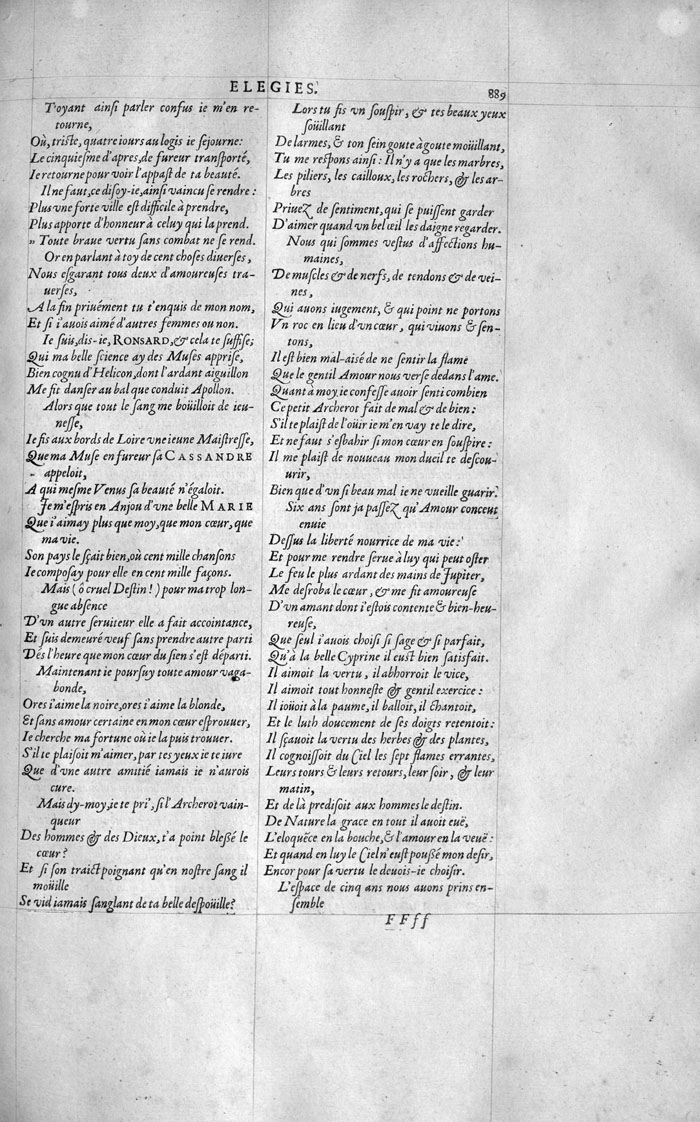 ELEGIES.
889
Toyant ainſi parler confus ie m'en re-
tourne,
Où, triſte, quatre iours au logis ie ſejourne:
Le cinquieſme d'apres, de fureur tranſporté,
Ie retourne pour voir l'appaſt de ta beauté.
Il ne faut, ce diſoy-ie, ainſi vaincu ſe rendre:
Plus vne forte ville eſt difficile à prendre,
Plus apporte d'honneur à celuy qui la prend.
„ Toute braue vertu ſans combat ne ſe rend.
Or en parlant à toy de cent choſes diuerſes,
Nous eſgarant tous deux d'amoureuſes tra-
uerſes,
A la fin priuément tu t'enquis de mon nom,
Et ſi i'auois aimé d'autres femmes ou non.
Ie ſuis, dis-ie, RONSARD, & cela te ſuffiſe;
Qui ma belle ſcience ay des Muſes appriſe,
Bien cognu d'Helicon, dont l'ardant aiguillon
Me fit danſer au bal que conduit Apollon.
Alors que tout le ſang me boüilloit de ieu-
neſſe,
Ie fis aux bords de Loire vne ieune Maiſtreſſe,
Que ma Muſe en fureur ſa CASSANDRE
appeloit,
A qui meſme Venus ſa beauté n'égaloit.
Je m'eſpris en Anjou d'vne belle MARIE
Que i'aimay plus que moy, que mon cœur, que
ma vie.
Son pays le ſçait bien, où cent mille chanſons
Ie compoſay pour elle en cent mille façons.
Mais (ô cruel Deſtin!) pour ma trop lon-
gue abſence
D'vn autre ſeruiteur elle a fait accointance,
Et ſuis demeuré veuf ſans prendre autre parti
Dés l'heure que mon cœur du ſien s'eſt départi.
Maintenant ie pourſuy toute amour vaga-
bonde,
Ores i'aime la noire, ores i'aime la blonde,
Et ſans amour certaine en mon cœur eſprouuer,
Ie cherche ma fortune où ie la puis trouuer.
S'il te plaiſoit m'aimer, par tes yeux ie te iure
Que d'vne autre amitié iamais ie n'aurois
cure.
Mais dy-moy, ie te pri', ſi l'Archerot vain-
queur
Des hommes & des Dieux, t'a point bleßé le
cœur?
Et ſi ſon traict poignant qu'en noſtre ſang il
moüille
Se vid iamais ſanglant de ta belle deſpoüille?
Lors tu fis vn ſouſpir, & tes beaux yeux
ſoüillant
De larmes, & ton ſein goute à goute moüillant,
Tu me reſpons ainſi: Il n'y a que les marbres,
Les piliers, les cailloux, les rochers, & les ar-
bres
Priuez de ſentiment, qui ſe puiſſent garder
D'aimer quand vn bel œil les daigne regarder.
Nous qui ſommes veſtus d'affections hu-
maines,
De muſcles & de nerfs, de tendons & de vei-
nes,
Qui auons iugement, & qui point ne portons
Vn roc en lieu d'vn cœur, qui viuons & ſen-
tons,
Il eſt bien mal-aisé de ne ſentir la flame
Que le gentil Amour nous verſe dedans l'ame.
Quant à moy, ie confeſſe auoir ſenti combien
Ce petit Archerot fait de mal & de bien:
S'il te plaiſt de l'oüir ie m'en vay te le dire,
Et ne faut s'eſbahir ſi mon cœur en ſouſpire:
Il me plaiſt de nouueau mon dueil te deſcou-
urir,
Bien que d'vn ſi beau mal ie ne vueille guarir.
Six ans ſont ja paſſez qu'Amour conceut
enuie
Deſſus la liberté nourrice de ma vie:
Et pour me rendre ſerue à luy qui peut oſter
Le feu le plus ardant des mains de Jupiter,
Me deſroba le cœur, & me fit amoureuſe
D'vn amant dont i'eſtois contente & bien-heu-
reuſe,
Que ſeul i'auois choiſi ſi ſage & ſi parfait,
Qu'à la belle Cyprine il euſt bien ſatisfait.
Il aimoit la vertu, il abhorroit le vice,
Il aimoit tout honneſte & gentil exercice:
Il ioüoit à la paume, il balloit, il chantoit,
Et le luth doucement de ſes doigts retentoit:
Il ſçauoit la vertu des herbes & des plantes,
Il cognoiſſoit du Ciel les ſept flames errantes,
Leurs tours & leurs retours, leur ſoir, & leur
matin,
Et de là prediſoit aux hommes le deſtin.
De Nature la grace en tout il auoit euë,
L'eloquẽce en la bouche, & l'amour en la veuë:
Et quand en luy le Ciel n'euſt poußé mon deſir,
Encor pour ſa vertu le deuois-ie choiſir.
L'eſpace de cinq ans nous auons prins en-
ſemble
FFff